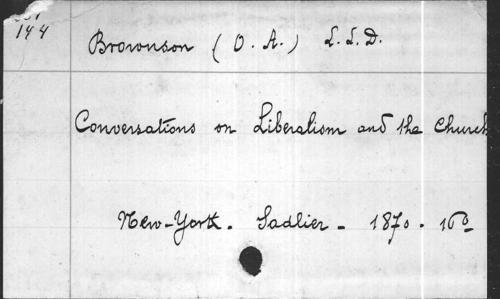 144
Brownson (O. A.) L.L.D.
Conversations on Liberalism and the Church
New-York. Sadlier - 1870. 16º